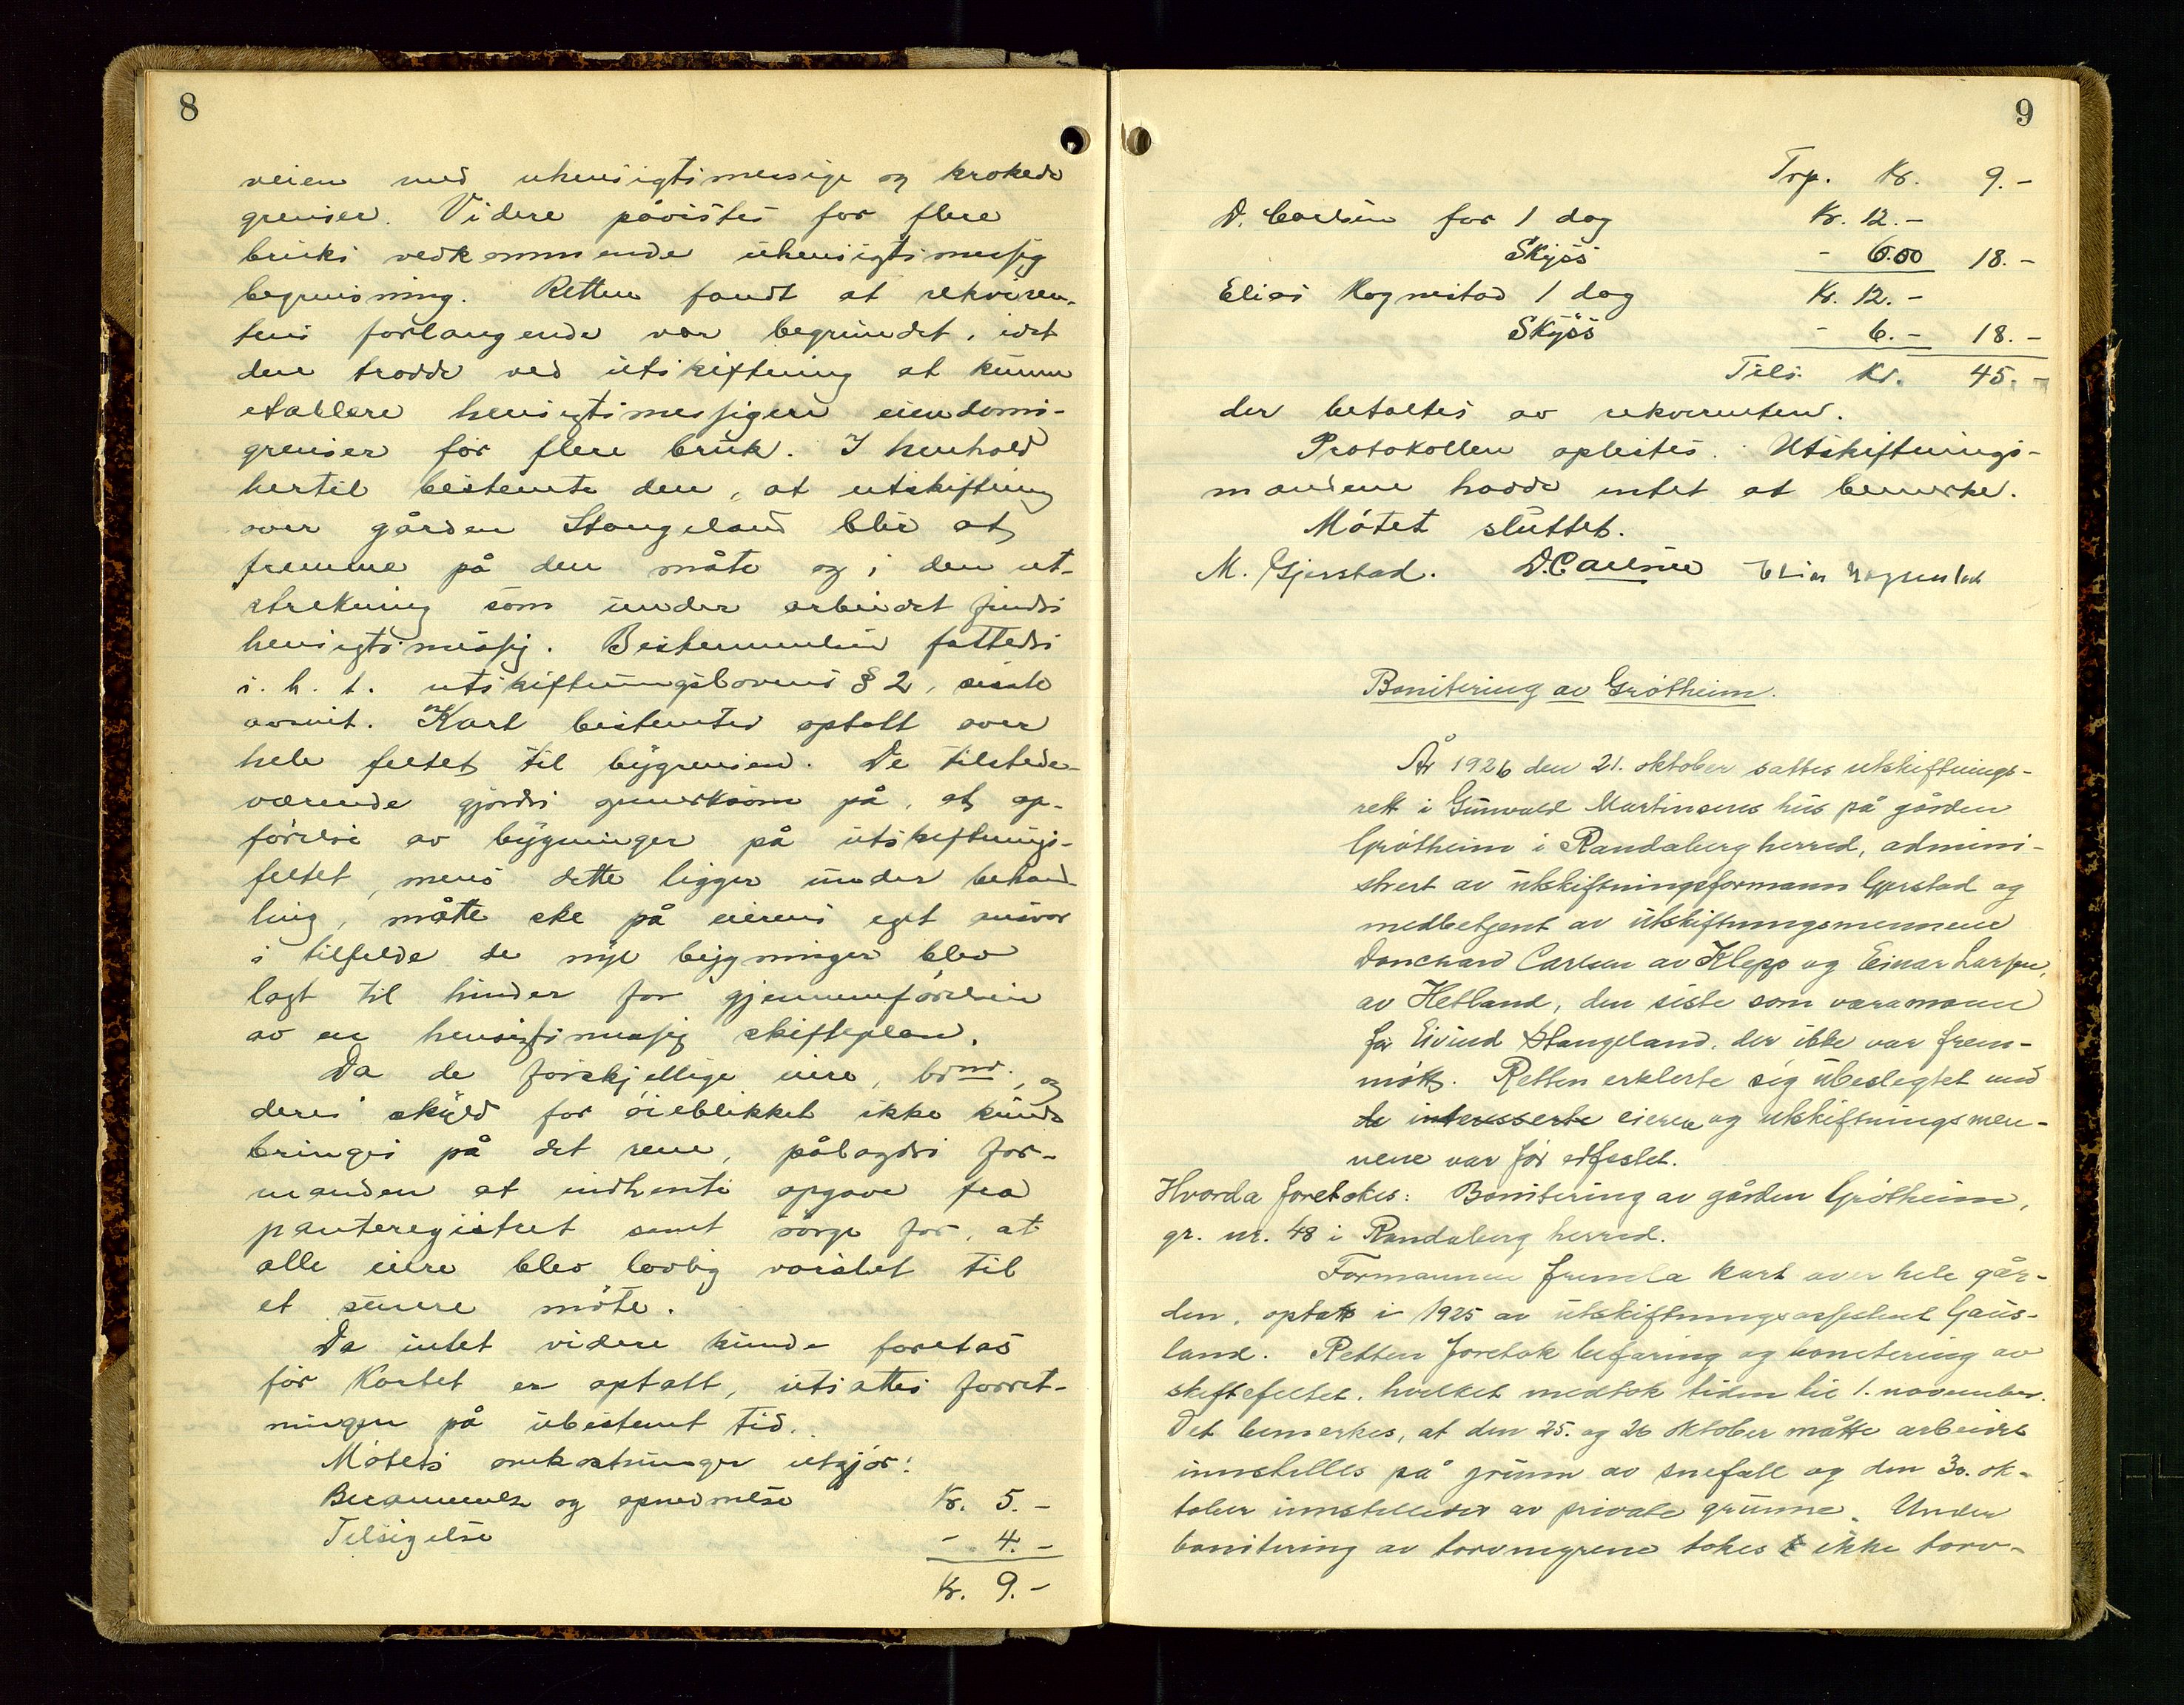 8
veien med uhensigtsmessige og krokede
grenser. Videre påvistes for flere
bruks vedkommende uhensigtsmessig
begrensning. Retten fandt at rekviren-
tens forlangende var begrundet, idet
den trodde ved utskiftning at kunne
etablere hensigtsmessigere eiendoms-
grenser for flere bruk. I henhold
hertil bestemte den, at utskiftning
over gården Stangeland blir at
fremme på den måte og i den ut-
strekning som under arbeidet findes
hensigtsmessig. Bestemmelsen fattedes
i. h. t. utskiftningslovens § 2, siste
avsnit. Kart bestemtes optatt over
hele feltet til bygrensen. De tilstede-
værende gjordes opmerksom på, at op-
førelse av bygninger på utskiftnings-
feltet, mens dette ligger under behand-
ling, måtte ske på eierens eget ansvar
i tilfelde de nye bygninger blev
lagt til hinder for gjennemførelsen
av en hensigtsmessig skifteplan.
Da de forskjellige eiere, br nr., og
deres skyld for øieblikket ikke kunde
bringes på det rene, pålagdes for-
manden at indhente opgave fra
panteregistret samt sørge for, at
alle eiere blev lovlig varslet til
et senere møte.
Da intet videre kunde foretas
før kartet er optatt, utsattes forret-
ningen på ubestemt tid.
Møtets omkostninger utgjør:
Berammelse og opnevnelse Kr. 5.-
Tilsigelse - 4.-
Kr. 9.-
9
Trp. Kr. 9.-
D. Carlsen for 1 dag Kr. 12.-
Skyss - 6.00 18.-
Elias Kognestad 1 dag Kr. 12.-
Skyss - 6.- 18.-
Tils. Kr. 45.-
der betaltes av rekvirenten.
Protokollen oplestes. Utskiftnings-
mændene hadde intet at bemerke.
Møtet sluttet.
M. Gjerstad. D. Carlsen Elias Kognestad
Bonitering av Grøtheim.
År 1926 den 21. oktober sattes utskiftnings-
rett i Gunvald Martinsens hus på gården
Grøtheim i Randaberg herred, admini-
strert av utskiftningsformann Gjerstad og
medbetjent av utskiftningsmennene
Danchard Carlsen av Klepp og Einar Larsen,
av Hetland, den siste som varamann
for Eivind Stangeland, der ikke var frem-
møtt. Retten erklerte sig ubeslegtet med
de interesserte eierne og utskiftningsmen-
nene var før edfestet.
Hvorda foretokes: Bonitering av gården Grøtheim,
gr. nr. 48 i Randaberg herred.
Formannen fremla kart over hele går-
den, optatt i 1925 av utskiftningsassistent Gaus-
land. Retten foretok befaring og bonitering av
skiftefeltet, hvilket medtok tiden til 1. november.
Det bemerkes, at den 25. og 26 oktober måtte arbeidet
innstilles på grunn av snefall og den 30. ok-
tober innstilledes av private grunne. Under
bonitering av torvmyrene tokes ikke torv-